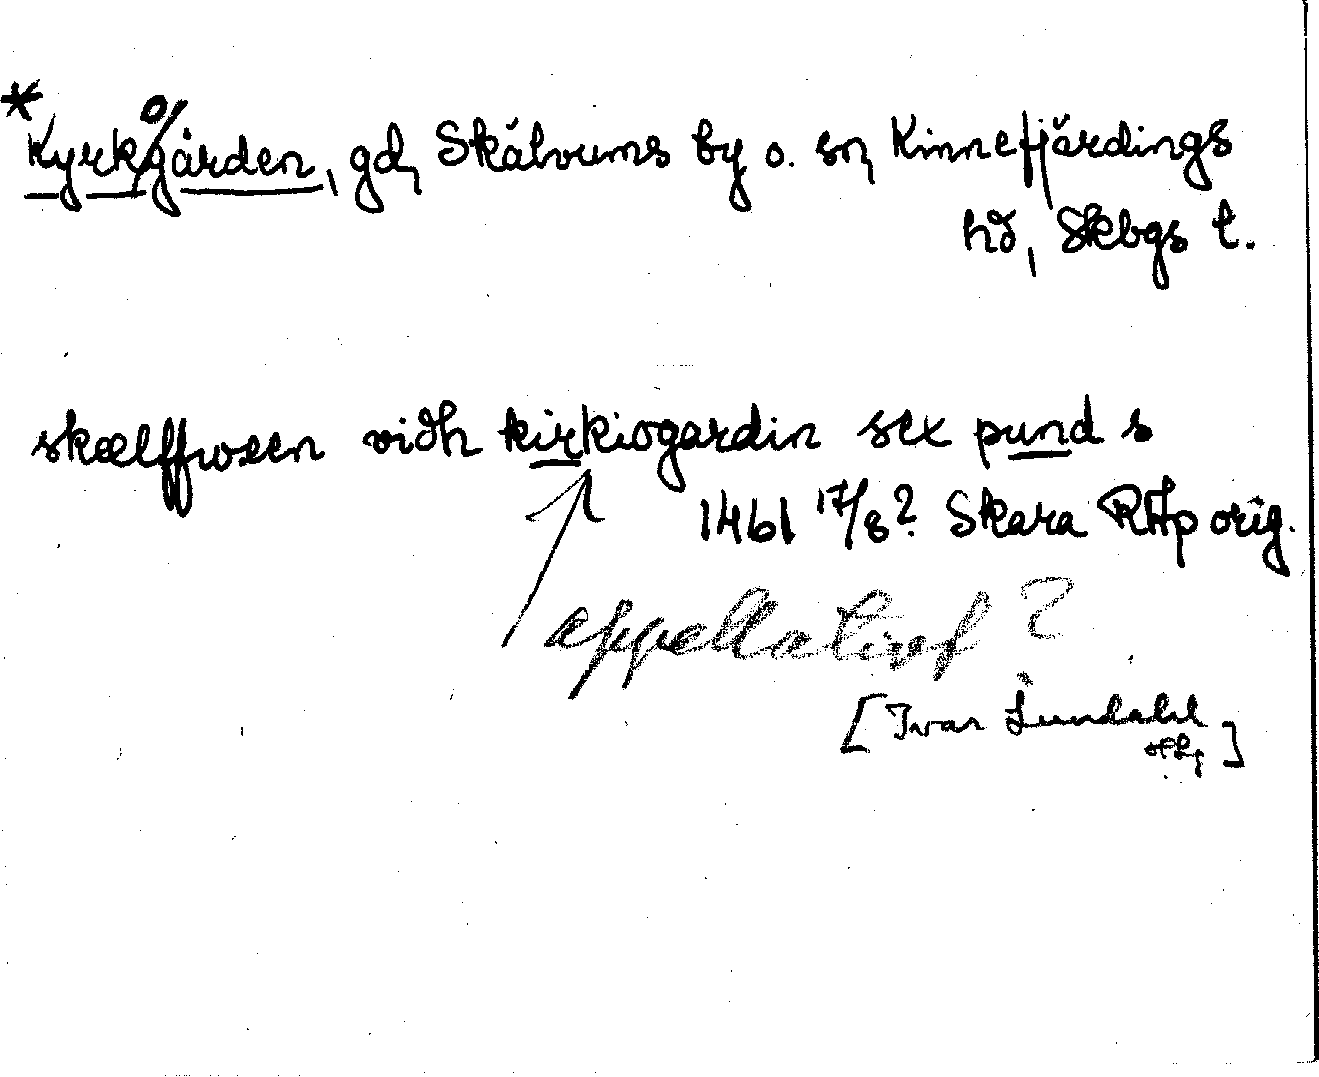 *Kyrkogården, gd, Skälvums by o. sn, Kinnefjärdings
hd, Skbgs l.
skælffwæn vidh kirkiogardin sex pund s
1461 17/8? Skara RAp orig.
appellativ?
[Ivar Lundahl
]